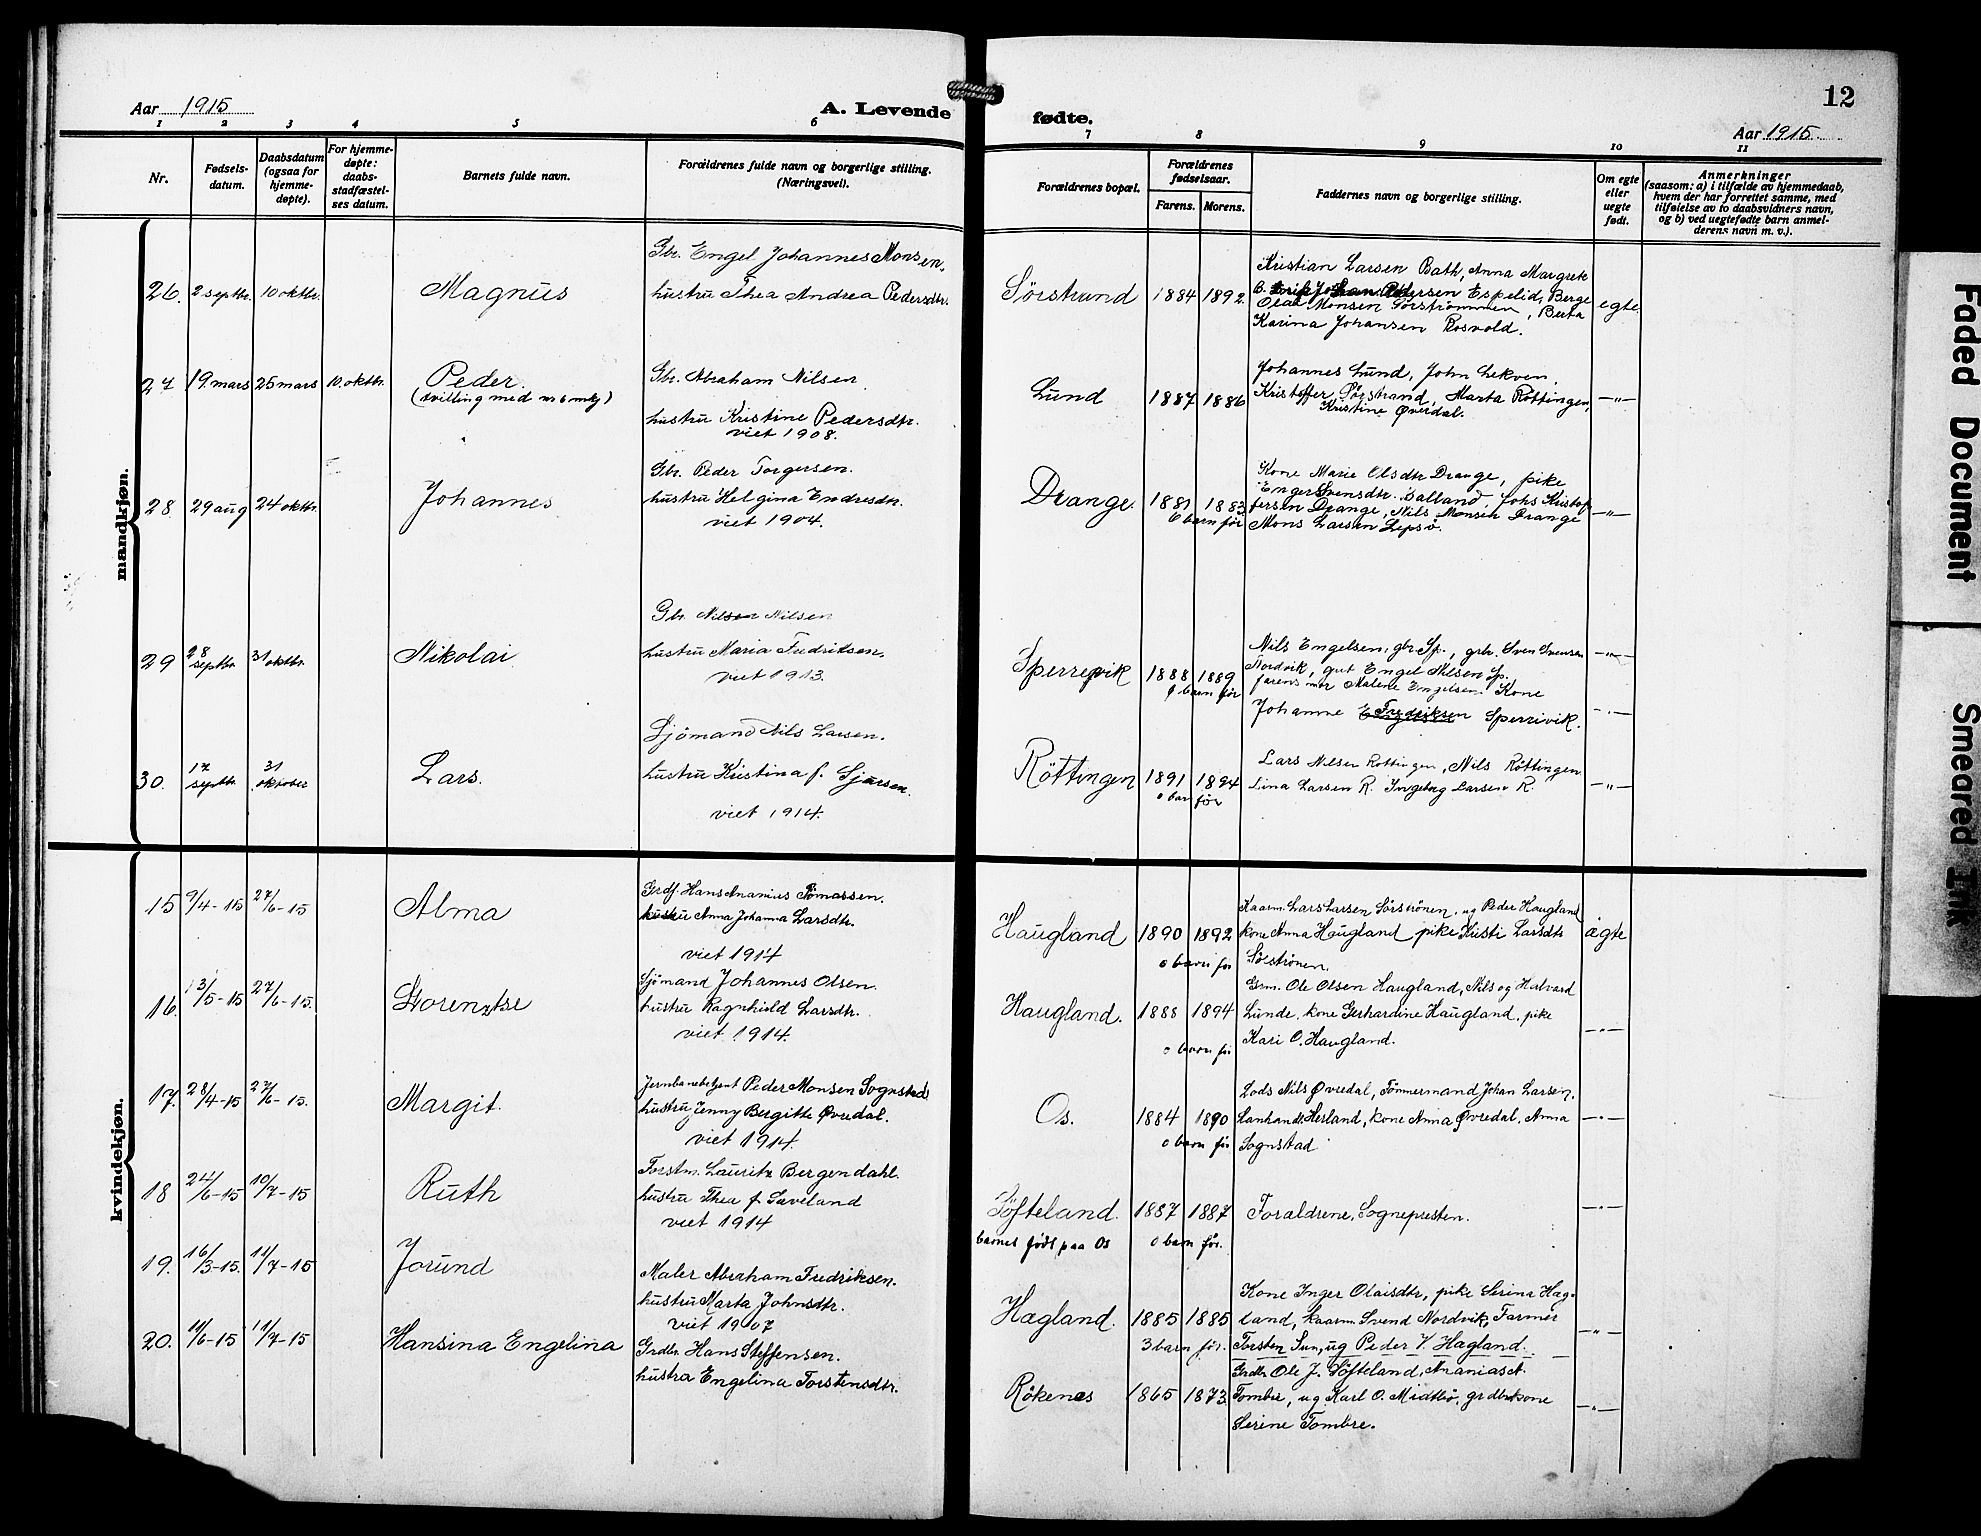 Aar 1915
A. Levende
fødte.
12
Aar 1915
1 2 3 4 5 6 7 8 9 10 11
Nr.
Fødsels-
datum.
Daabsdatum
(ogsaa for
hjemme-
døpte).
For hjemme-
døpte:
daabs-
stadfæstel-
ses datum.
Barnets fulde navn.
Forældrenes fulde navn og borgerlige stilling.
(Næringsvei).
Forældrenes bopæl.
Forældrenes
fødselsaar.
Farens. Morens.
Faddernes navn og borgerlige stilling.
Om egte
eller
uegte
født.
Anmerkninger
(saasom: a) i tilfælde av hjemmedaab,
hvem der har forrettet samme, med
tilføielse av to daabsvidners navn,
og b) ved uegtefødte barn anmel-
derens navn m. v.).
mandkjøn.
26. 2 septbr. 10 oktbr. Magnus
Gbr. Engel Johannes Monsen,
hustru Thea Andrea Pedersdtr.
Sørstrand 1884 1892
Kristian Larsen Bath, Anna Margrete
Pedersen Espelid, Berge
Olai Monsen Sørstrømmen, Berta
Karina Johansen Rosvold.
egte
27 19. mars 25 mars 10. oktbr. Peder.
(tvilling med nr 6 mkj)
Gbr. Abraham Nilsen
hustru Kristine Pedersdtr.
viet 1908.
Lund 1887 1886
Johannes Lund, John Lekven,
Kristoffer Sørstrand, Marta Røttingen,
Kristine Øvredal.
—"—
28. 29 aug 24 oktbr. Johannes
Gbr. Peder Torgersen.
hustru Helgina Endresdtr.
viet 1904.
Drange. 1881 1883
6 barn før
Kone Marie Olsdtr Drange, pike
Engel Svensdtr. Balland Johs Kristof-
fersen Drange, Nils Monsen Drange
Mons Larsen Lepsø.
—"—
29 28 septbr 31 oktbr. Nikolai
Gbr. Nilsen Nilsen
hustru Maria Fredriksen,
viet 1913.
Sperrevik 1888 1889
barn før
Nils Engelsen, gbr Sp., grbr. Sven Svensen
Nordvik, gut Engel Nilsen Sp.
farens mor Malene Engelsen. Kone
Johanne E Fredriksen Sperrivik.
—"—
—"—
30. 17 septbr. 31 oktober Lars.
Sjømand Nils Larsen.
hustru Kristina f. Sjursen.
viet 1914.
Røttingen 1891 1894
0 barn før
Lars Nilsen Røttingen, Nils Røttingen
Lina Larsen R. Ingeborg Larsen R.
—"—
kvindekjøn.
15 9/4-15 27/6-15 Alma
Grdf. Hans Ananias Tømassen.
hustru Anna Johanna Larsdtr.
viet 1914
Haugland 1890 1892
0 barn før
Kaarm. Lars Larsen Sørstrønen, ug Peder Haugland
kone Anna Haugland pike Kristi Larsdtr
Sørstrønen.
ægte
16. 13/5-15 27/6-15. Lorentse
Sjømand Johannes Olsen.
hustru Ragnhild Larsdtr.
viet 1914.
Haugland. 1888 1894
0 barn før
Grm. Ole Olsen Haugland, Nils og Halvard
Lunde, kone Gerhardine Haugland, pike
Kari O. Haugland.
—"—
17. 28/4-15 27/6-15. Margit.
Jernbanebetjent Peder Monsen Sognstad
hustru Jenny Bergitte Øvredal.
viet 1914.
Os. 1884 1890
0 barn før
Lods Nils Øvredal, Tømmermand Johan Larsen,
Lanhandl. Hesland, kone Anna Øvredal, Anna
Sognstad
—"—
18 24/6-15 10/7-15 Ruth
Forstm. Lauritz Bergendahl.
hustru Thea f. Saveland
viet 1914
Søfteland. 1887 1887
barnet født paa Os 0 barn før.
Forældrene, Sognepresten.
—"—
19. 16/3-15. 11/7-15 Jorund
Maler Abraham Fredriksen.
hustru Marta Johnsdtr.
viet 1907
Hægland. 1885 1885
3 barn før.
Kone Inger Olaisdtr, pike Serina Hæg-
land, kaarm. Svend Nordvik, Farmer
Torsten Sun, ug Peder V. Hægland.
—"—
20. 11/6-15 11/7-15 Hansina Engelina
Grdbr. Hans Steffensen.
hustra Engelina Torstensdtr.
Røkenes 1865 1873
Grdbr Ole J. Søfteland, Ananias A.
Tombre, ug Karl O. Midtbø, grdbrkone
Serine Tombre.
—"—
Faded Document
Smeared Ink